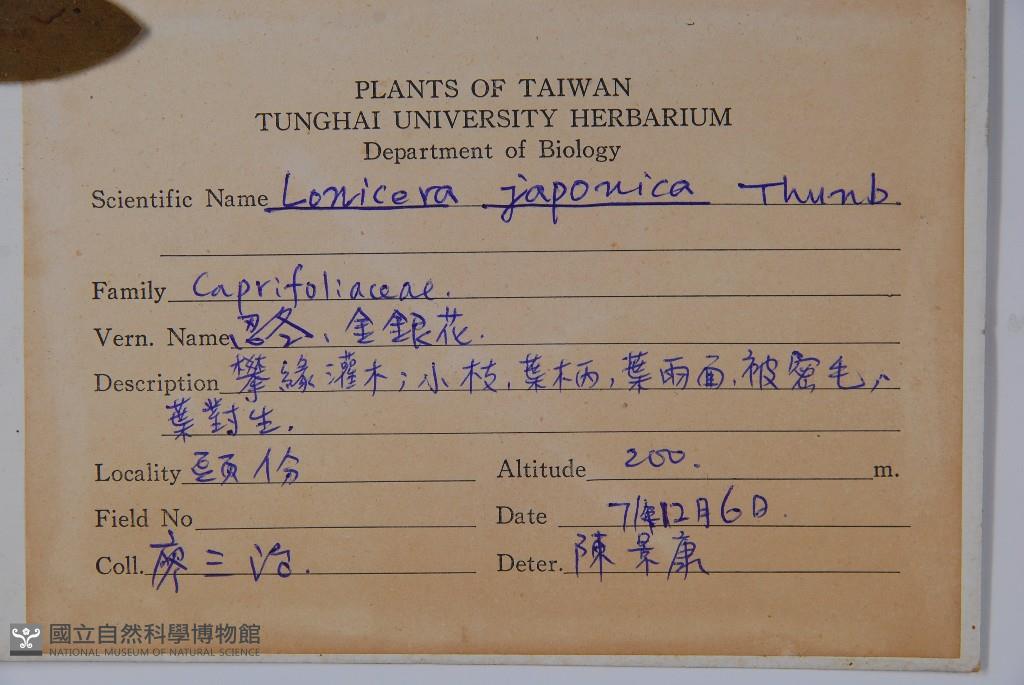 PLANTS OF TAIWAN
TUNGHAI UNIVERSITY HERBARIUM
Department of Biology
Scientific Name Lonicera japonica Thunb.
Family Caprifoliaceae.
Vern. Name 忍冬、金銀花.
Description 攀緣灌木;小枝,葉柄,葉兩面,被密毛,
葉對生.
Locality 頭份
Altitude 200. m.
Field No
Date 71年12月6日.
Coll. 廖三治.
Deter. 陳景康
國立自然科學博物館
NATIONAL MUSEUM OF NATURAL SCIENCE